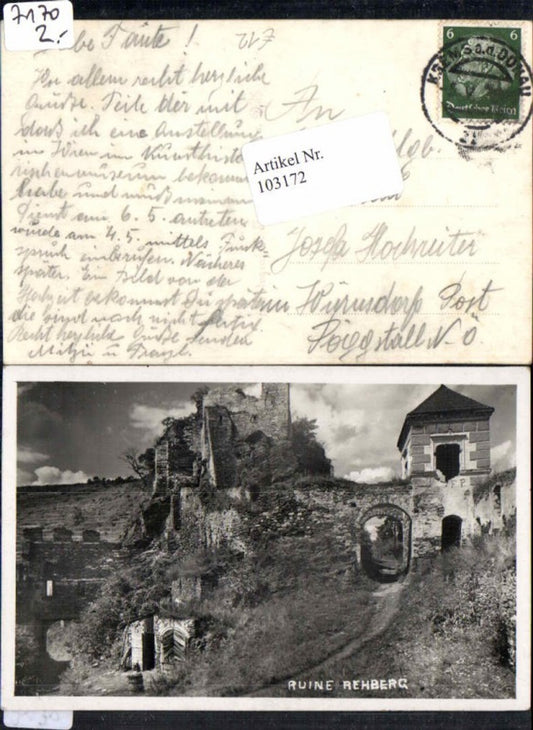 7170
2.-
712
Liebe Tante!
Vor allem recht herzliche
Grüße. Teile dir mit
daß ich eine Anstellung
in Wien im Kunsthisto
rischen museum bekommen
habe und muß meinen
Dienst am 6. 5. antreten
wurde am 4. 5. mittels Funk-
spruch einberufen. Näheres
später. Ein Bild von der
Hochzeit bekommst Du später
die sind noch nicht fertig.
Recht herzliche Grüße senden
Mitzi u Franzl.
An
Josefa Hochreiter
in Würnsdorf Post
Poggstall N. Ö
Artikel Nr.
103172
6 6
Deutsches Reich
KREMS a. d. DONAU
RUINE REHBERG